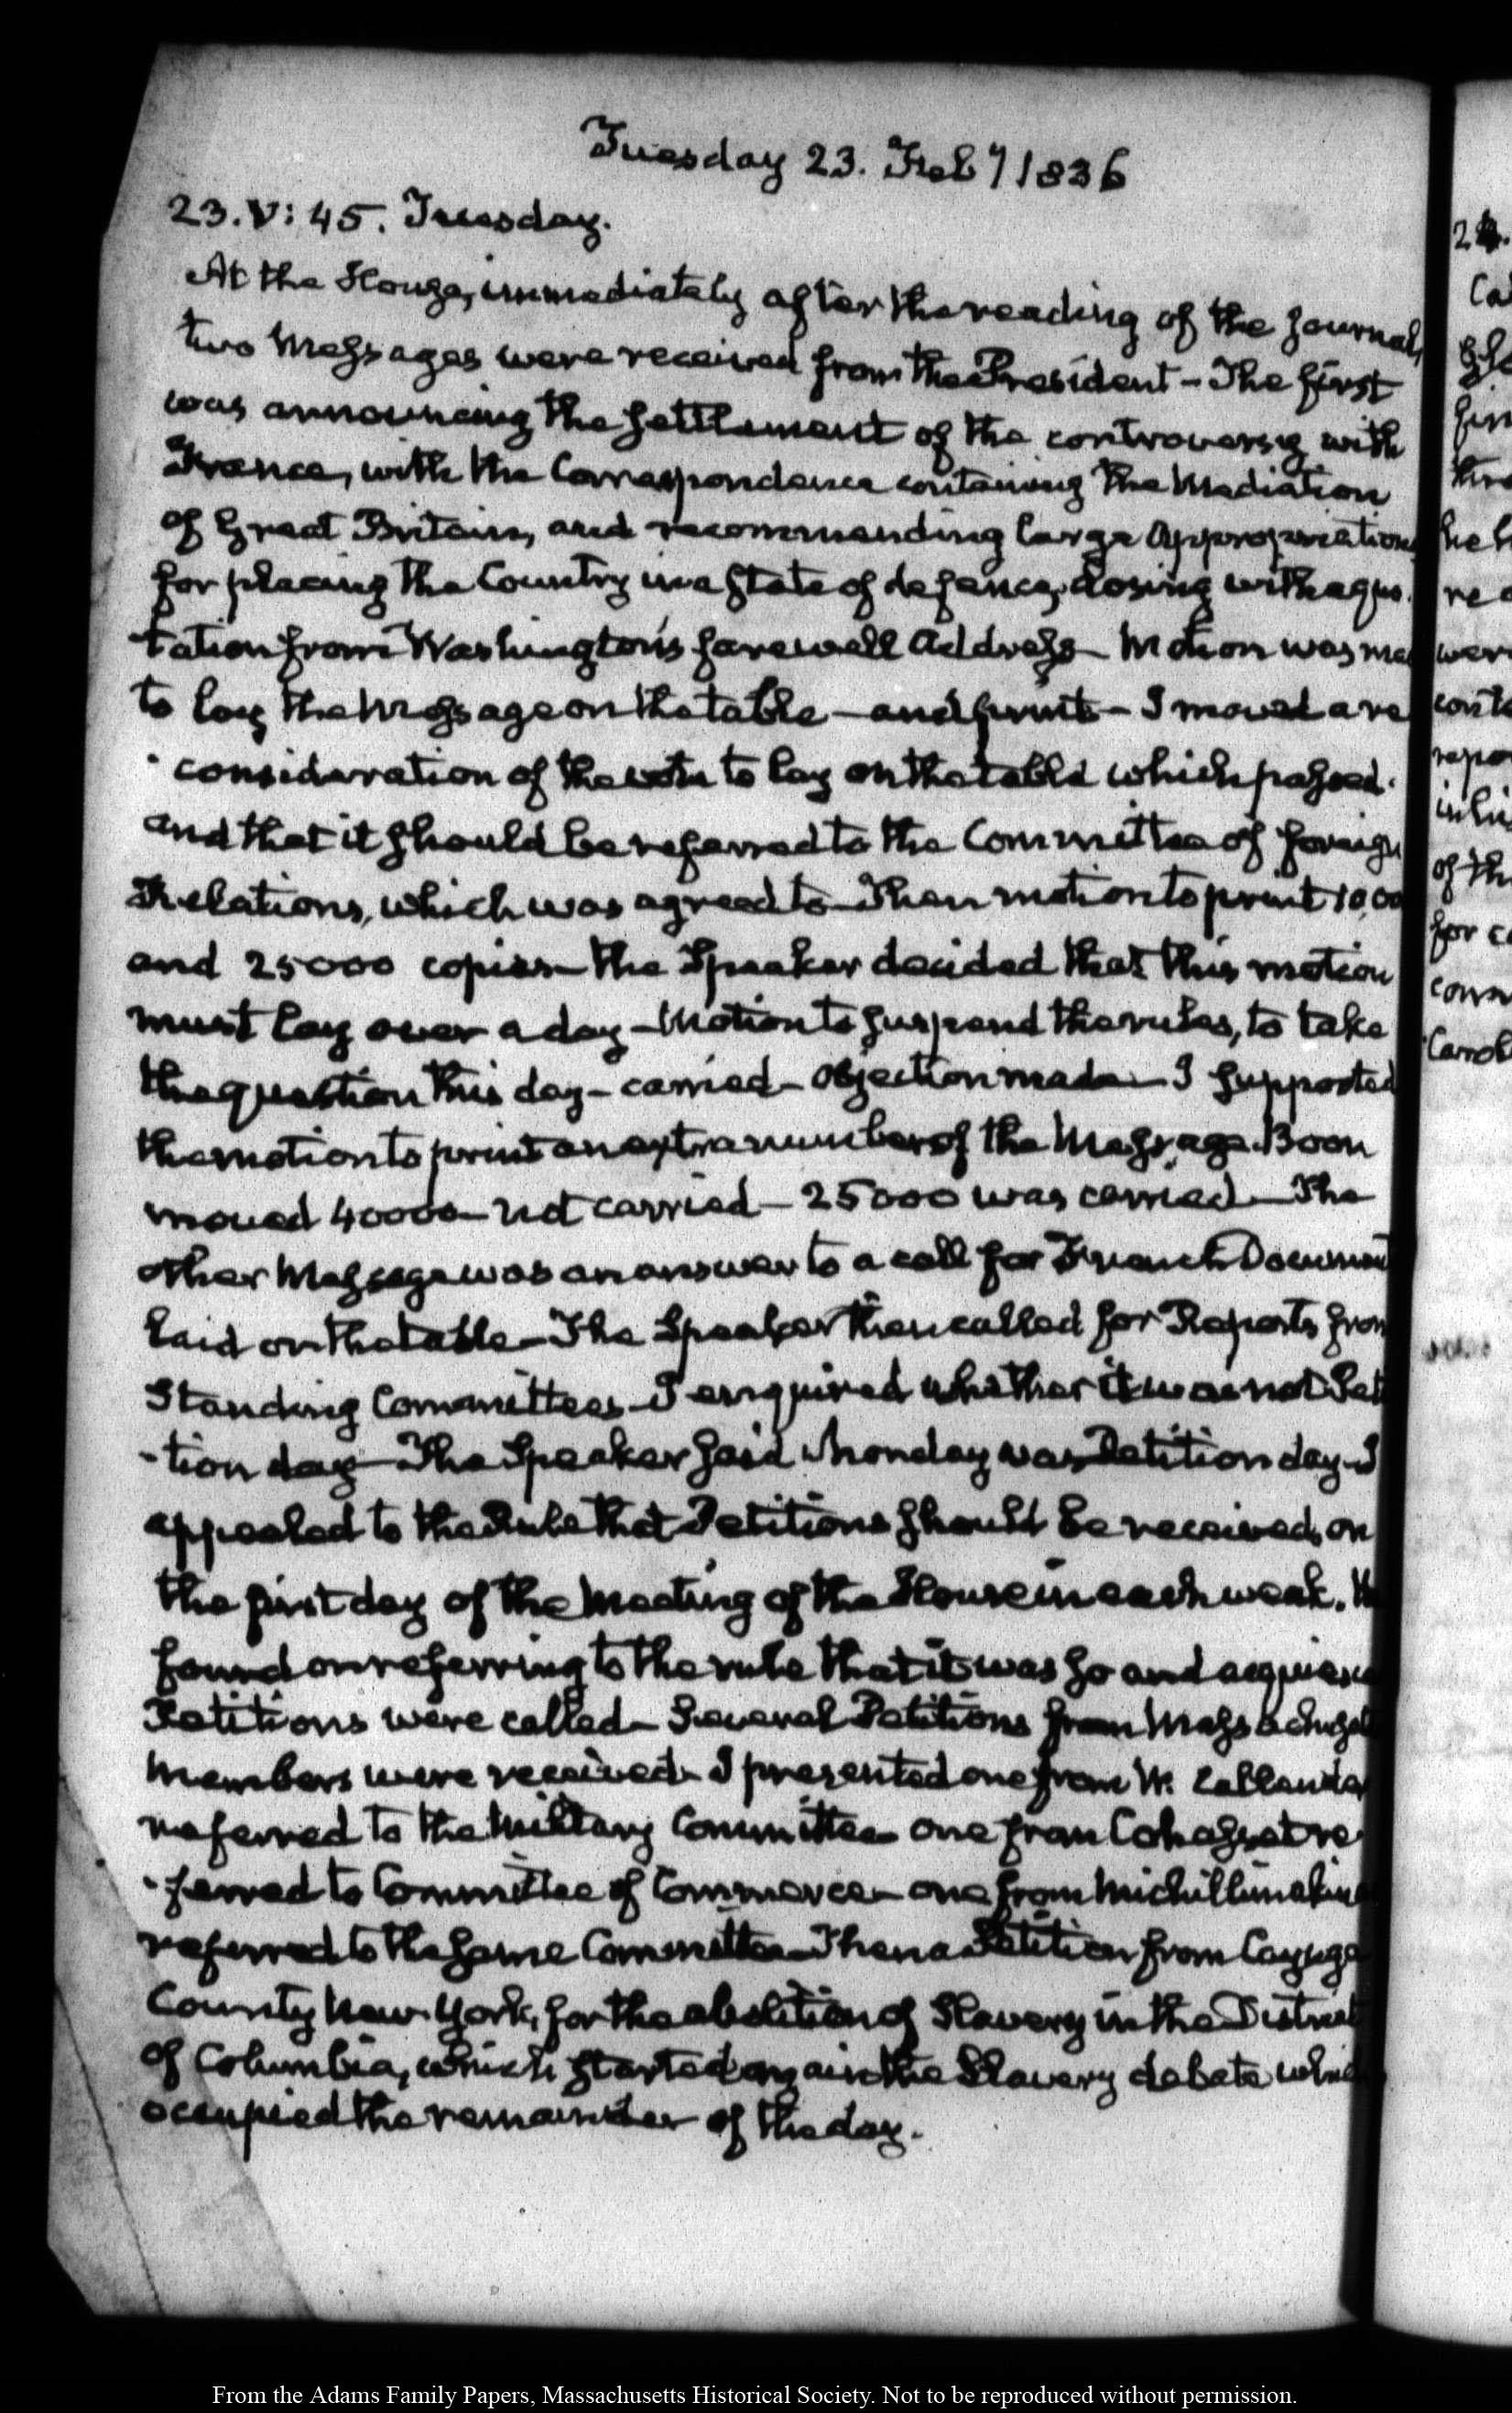 Tuesday 23. Feb y 1836
23. V: 45. Tuesday.
At the House, immediately after the reading of the Journal,
two Messages were received from the President - The first
was announcing the settlement of the controversy with
France, with the Correspondence containing the Mediation
of Great Britain, and recommending large Appropriations
for placing the Country in a State of defence, closing with a quo
tation from Washington's farewell Address - Motion was ma
to lay the Message on the table - and print - I moved a re
consideration of the vote to lay on the table which passed.
and that it should be referred to the Committee of foreign
Relations, which was agreed to - Then motion to print 10,00
and 25000 copies - the Speaker decided that this motion
must lay over a day - Motion to suspend the rules, to take
the question this day - carried - Objection made - I supported
the motion to print an extra number of the Message. Boon
moved 40000 - not carried - 25000 was carried - The
other Message was an answer to a call for French Document
laid on the table - The Speaker then called for Reports from
Standing Committees - I enquired whether it was not Peti
-tion day - The Speaker said Monday was Petition day - I
appealed to the Rule that Petitions should be received, on
the first day of the Meeting of the House in each week. H
found on referring to the rule that it was so and acquiesc
Petitions were called - Several Petitions from Massachuset
Members were received - I presented one from W.
referred to the Military Committee - one from Cohasset re
-ferred to Committee of Commerce - one from Michillimakina
referred to the same Committee - Then a Petition from Cayuga
County New-York, for the abolition of Slavery in the District
of Columbia, which started again the Slavery debate which
occupied the remainder of the day.
24.
Ca
fin
thre
he h
re
were
conte
repo
of th
for c
com
Carol
From the Adams Family Papers, Massachusetts Historical Society. Not to be reproduced without permission.